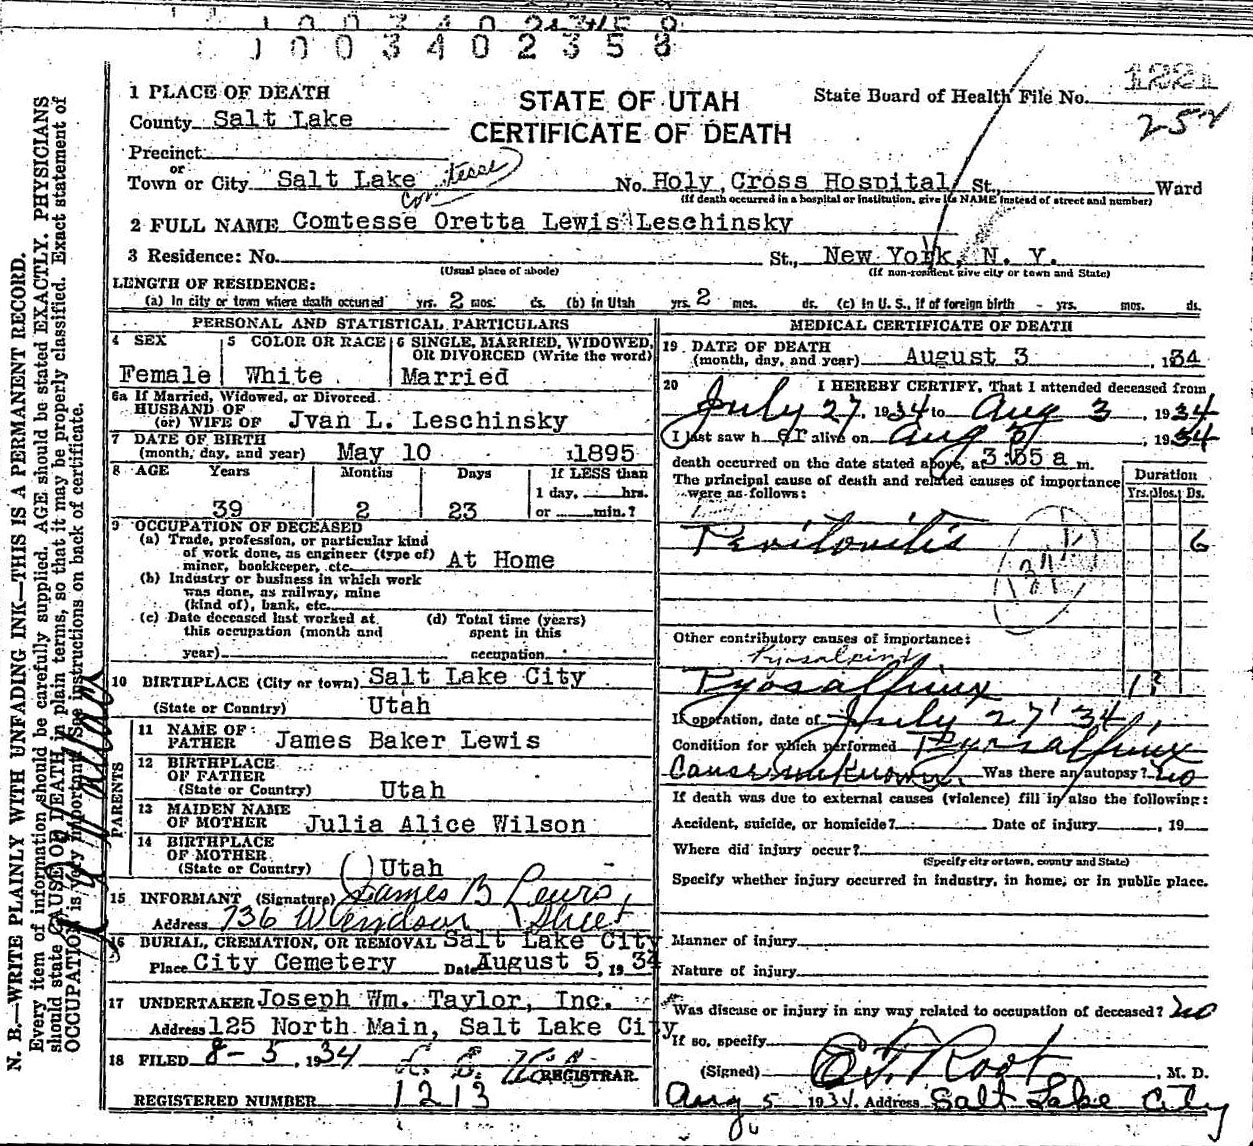 1003402358
STATE OF UTAH
CERTIFICATE OF DEATH
State Board of Health File No. 1221
252
1 PLACE OF DEATH
County Salt Lake
Precinct
or
Town or City Salt Lake No. Holy Cross Hospital St., Ward
(If death occurred in a hospital or institution, give its NAME instead of street and number)
Comtesse
2 FULL NAME Comtesse Oretta Lewis Leschinsky
3 Residence: No. St., New York, N. Y.
(Usual place of abode) (If non-resident give city or town and State)
LENGTH OF RESIDENCE:
(a) In city or town where death occurred yrs. 2 mos. ds. (b) In Utah yrs. 2 mos. ds. (c) In U. S., if of foreign birth - yrs. mos. ds.
PERSONAL AND STATISTICAL PARTICULARS
4 SEX Female
5 COLOR OR RACE White
6 SINGLE, MARRIED, WIDOWED, OR DIVORCED (Write the word) Married
6a If Married, Widowed, or Divorced
HUSBAND OF
(or) WIFE OF Jvan L. Leschinsky
7 DATE OF BIRTH
(month, day, and year) May 10 1895
8 AGE Years Months Days If LESS than
1 day, hrs.
39 2 23 or min.?
9 OCCUPATION OF DECEASED
(a) Trade, profession, or particular kind
of work done, as engineer (type of)
miner, bookkeeper, etc. At Home
(b) Industry or business in which work
was done, as railway, mine
(kind of), bank, etc.
(c) Date deceased last worked at
this occupation (month and
year)
(d) Total time (years)
spent in this
occupation
10 BIRTHPLACE (City or town) Salt Lake City
(State or Country) Utah
PARENTS
11 NAME OF
FATHER James Baker Lewis
12 BIRTHPLACE
OF FATHER
(State or Country) Utah
13 MAIDEN NAME
OF MOTHER Julia Alice Wilson
14 BIRTHPLACE
OF MOTHER
(State or Country) Utah
15 INFORMANT (Signature) James B Lewis
Address 736 Windsor Street
16 BURIAL, CREMATION, OR REMOVAL Salt Lake City
Place City Cemetery Date August 5, 1934
17 UNDERTAKER Joseph Wm. Taylor, Inc.
Address 125 North Main, Salt Lake City
18 FILED 8-5, 1934
REGISTRAR.
REGISTERED NUMBER 1213
MEDICAL CERTIFICATE OF DEATH
19 DATE OF DEATH
(month, day, and year) August 3, 1934
20 I HEREBY CERTIFY, That I attended deceased from
July 27, 1934 to Aug 3, 1934
I last saw h er alive on Aug 3, 1934
death occurred on the date stated above, at 3:55 a m.
The principal cause of death and related causes of importance
were as follows:
Duration
Yrs. Mos. Ds.
Peritonitis 6
Other contributory causes of importance:
Pyosalpinx
Pyosalpinx 1?
If operation, date of July 27 '34
Condition for which performed Pyosalpinx
Cause unknown Was there an autopsy? no
If death was due to external causes (violence) fill in also the following:
Accident, suicide, or homicide? Date of injury , 19
Where did injury occur?
(Specify city or town, county and State)
Specify whether injury occurred in industry, in home, or in public place.
Manner of injury
Nature of injury
Was disease or injury in any way related to occupation of deceased? no
If so, specify
(Signed) E. F. Root, M. D.
Aug 5 1934. Address Salt Lake City
N. B.—WRITE PLAINLY WITH UNFADING INK—THIS IS A PERMANENT RECORD.
Every item of information should be carefully supplied. AGE should be stated EXACTLY. PHYSICIANS
should state CAUSE OF DEATH in plain terms, so that it may be properly classified. Exact statement of
OCCUPATION is very important. See instructions on back of certificate.